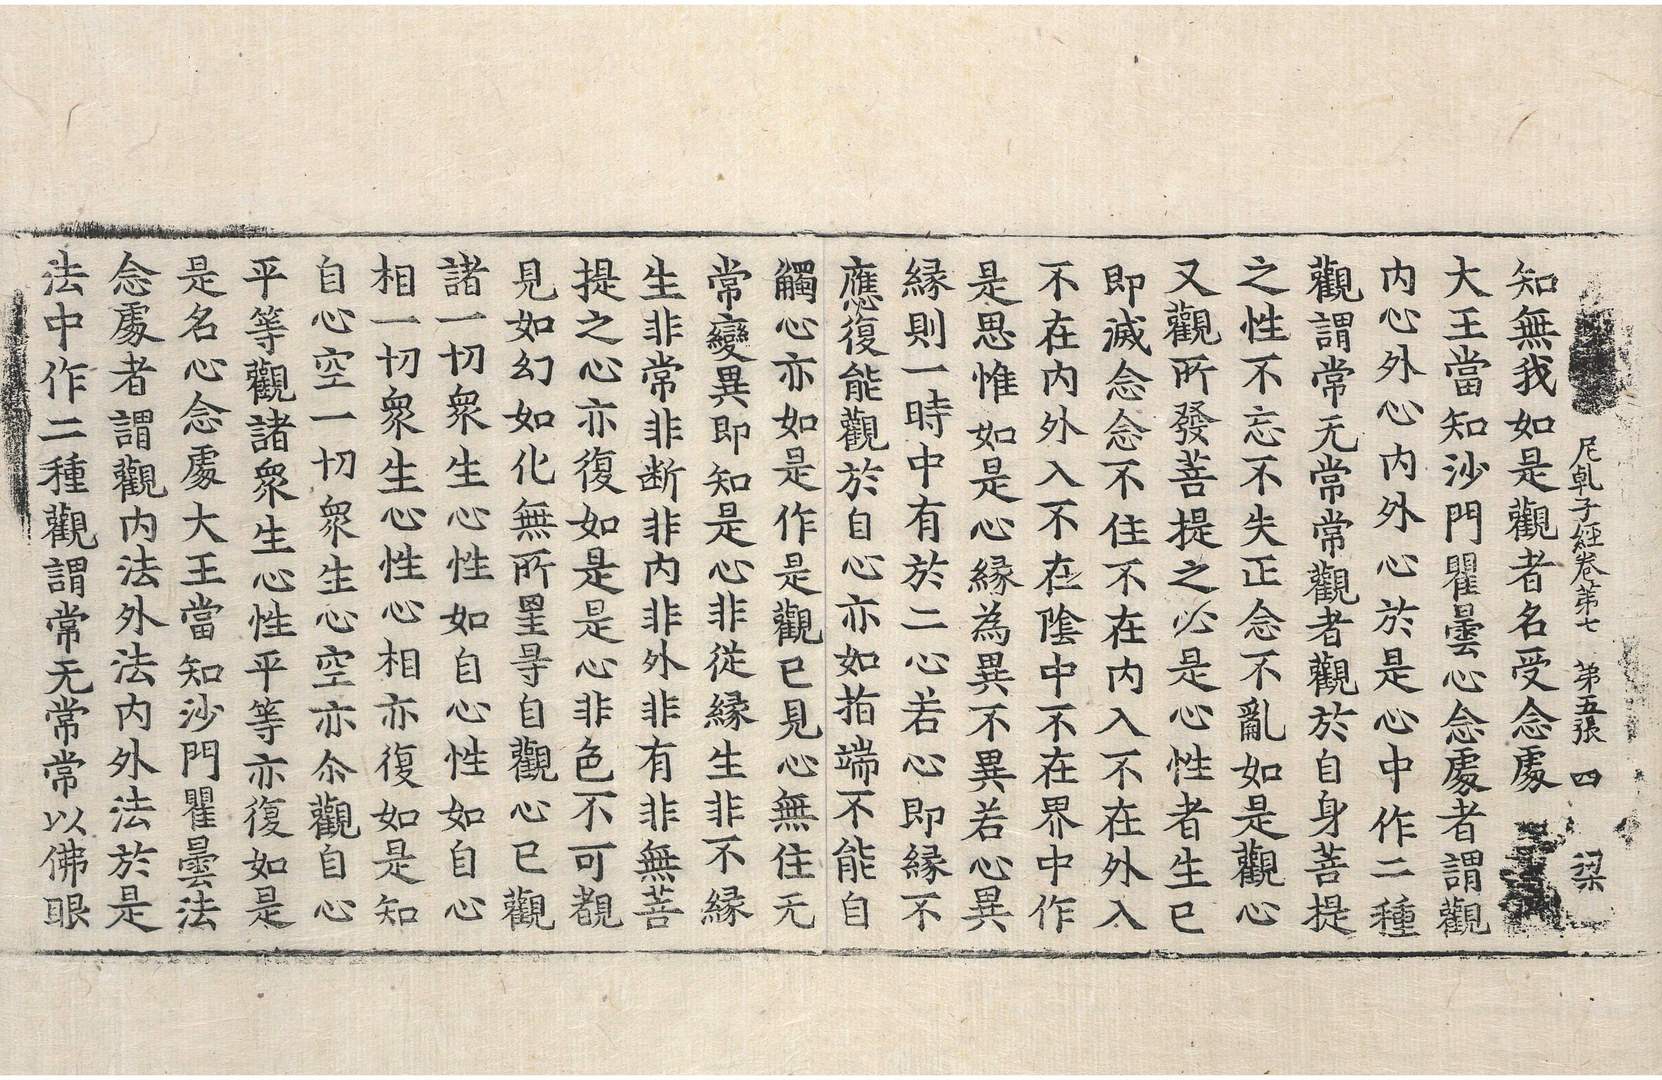 尼乹子經卷第七 第五張 四 梁
知無我如是觀者名受念處
大王當知沙門瞿曇心念處者謂觀
内心外心内外心於是心中作二種
觀謂常无常常觀者觀於自身菩提
之性不忘不失正念不亂如是觀心
又觀所發菩提之心是心性者生已
即滅念念不住不在内入不在外入
不在内外入不在陰中不在界中作
是思惟如是心縁為異不異若心異
縁則一時中有於二心若心即縁不
應復能觀於自心亦如指端不能自
觸心亦如是作是觀已見心無住无
常變異即知是心非從縁生非不縁
生非常非断非内非外非有非無菩
提之心亦復如是是心非色不可覩
見如幻如化無所罣㝵自觀心已觀
諸一切衆生心性如自心性如自心
相一切衆生心性心相亦復如是知
自心空一切衆生心空亦尒觀自心
平等觀諸衆生心性平等亦復如是
是名心念處大王當知沙門瞿曇法
念處者謂觀内法外法内外法於是
法中作二種觀謂常无常常以佛眼